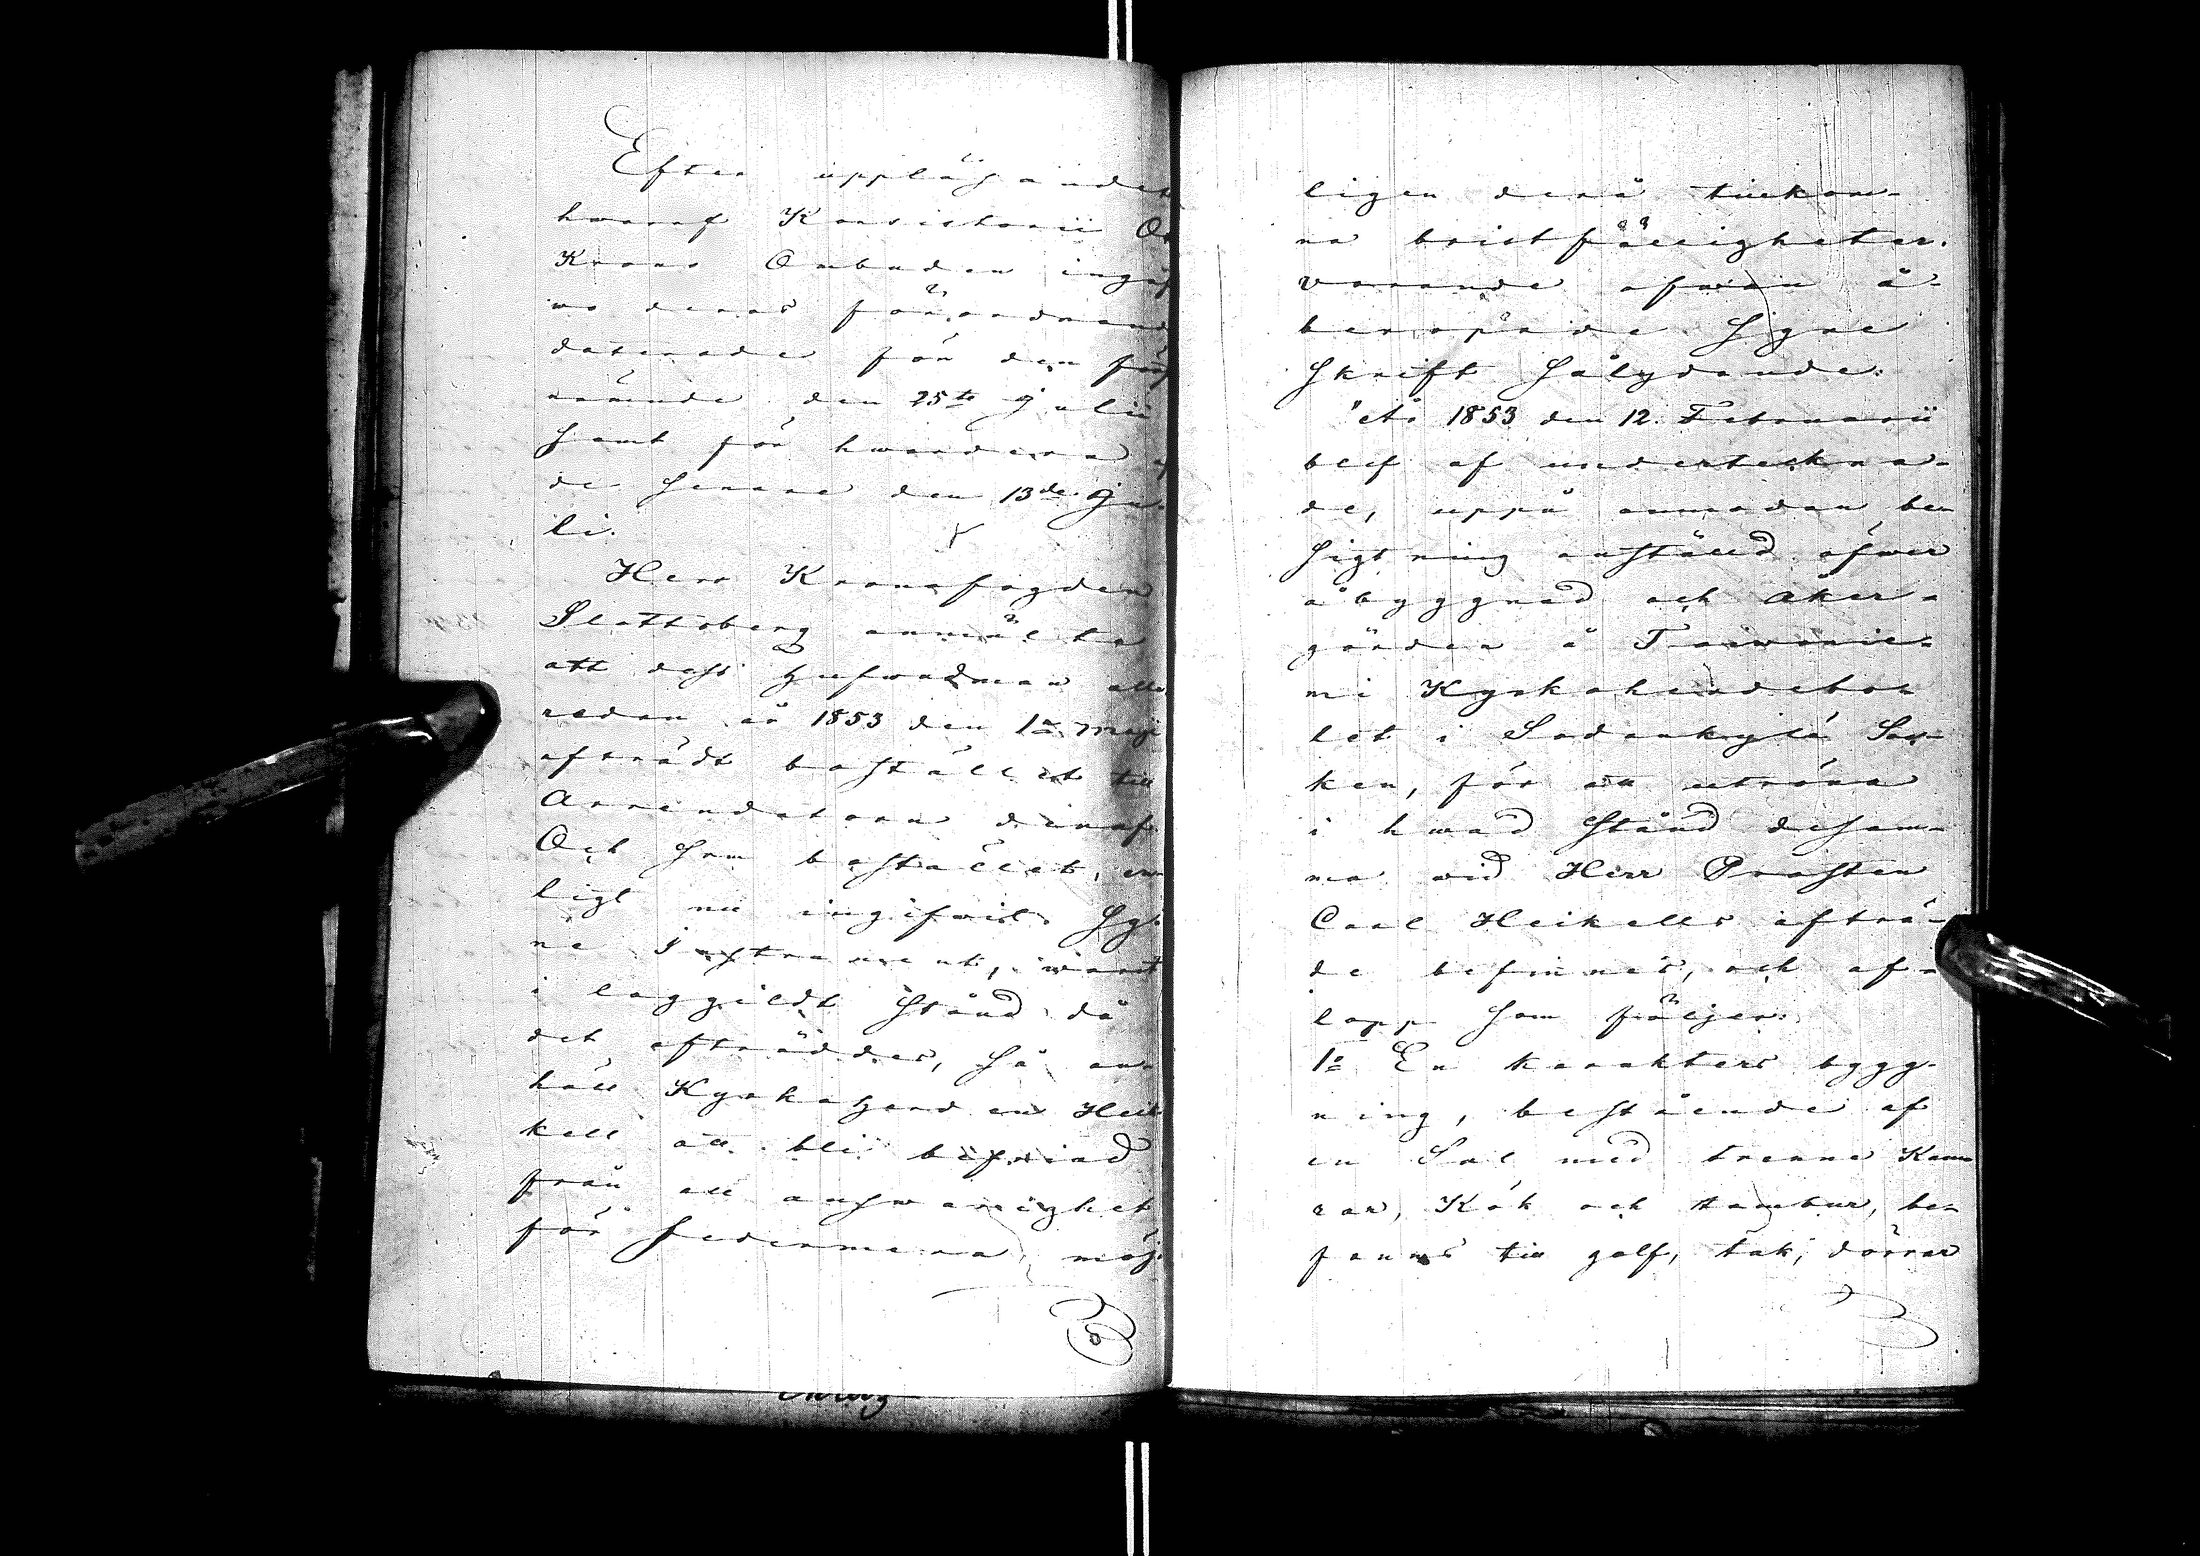 Efter uppläsandet
hwaraf Konsistorii Oc
Krono Ombuden ingåf
wo deras förordnand
daterade för den föd
nämnde den 25te Julii
samt för hwardera af
de senare den 13de Ju-
li.
Herr Kronofogden
Plantinberg anmälte
att dess Hufwudman alle
redan år 1853 den 1ta Maji
afträdt bostället till
Arrendatorn deraf
Och som bostället, en-
ligt nu ingifwit Sy-
ne Instrument, warit
i laggildt stånd då
det afträddes, så an-
höll Kyrkoherden Hei-
kell att bli befriad
från all answarighet
för sedermera möj-
ligen derå tillkom-
na bristfälligheter.
varande afwan å-
beropade Syne
Skrift sålydande:
"År 1853 den 12. Februarii
blef af underteckna-
de, uppå anmodan be-
sigtning anställd öfwer
åbyggnad och åker-
gärden å
mi Kyrkoherdebol-
let i Sodankylä Soc-
ken, för att utröna
i hwad stånd desam-
ma wid Herr Prosten
Carl Heikells afträ-
de befinnes, och af-
lopp som följer:
1o En karakters bygg-
ning, bestående af
en Sal med trenne Kam
rar, Kök och tambur, be-
fanns till golf, tak, dörrar